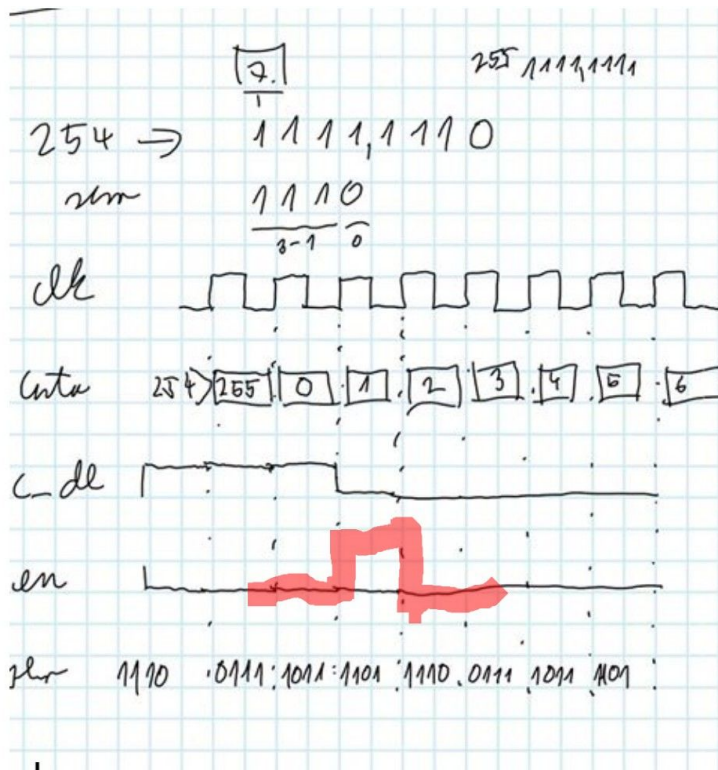 7. 255 1111,1111
254 → 1111,1110
1110
3-1 0
clk
cnta 254 255 0 1 2 3 4 5 6
c_de
en
1110 0111 1011 1101 1110 0111 1011 1101